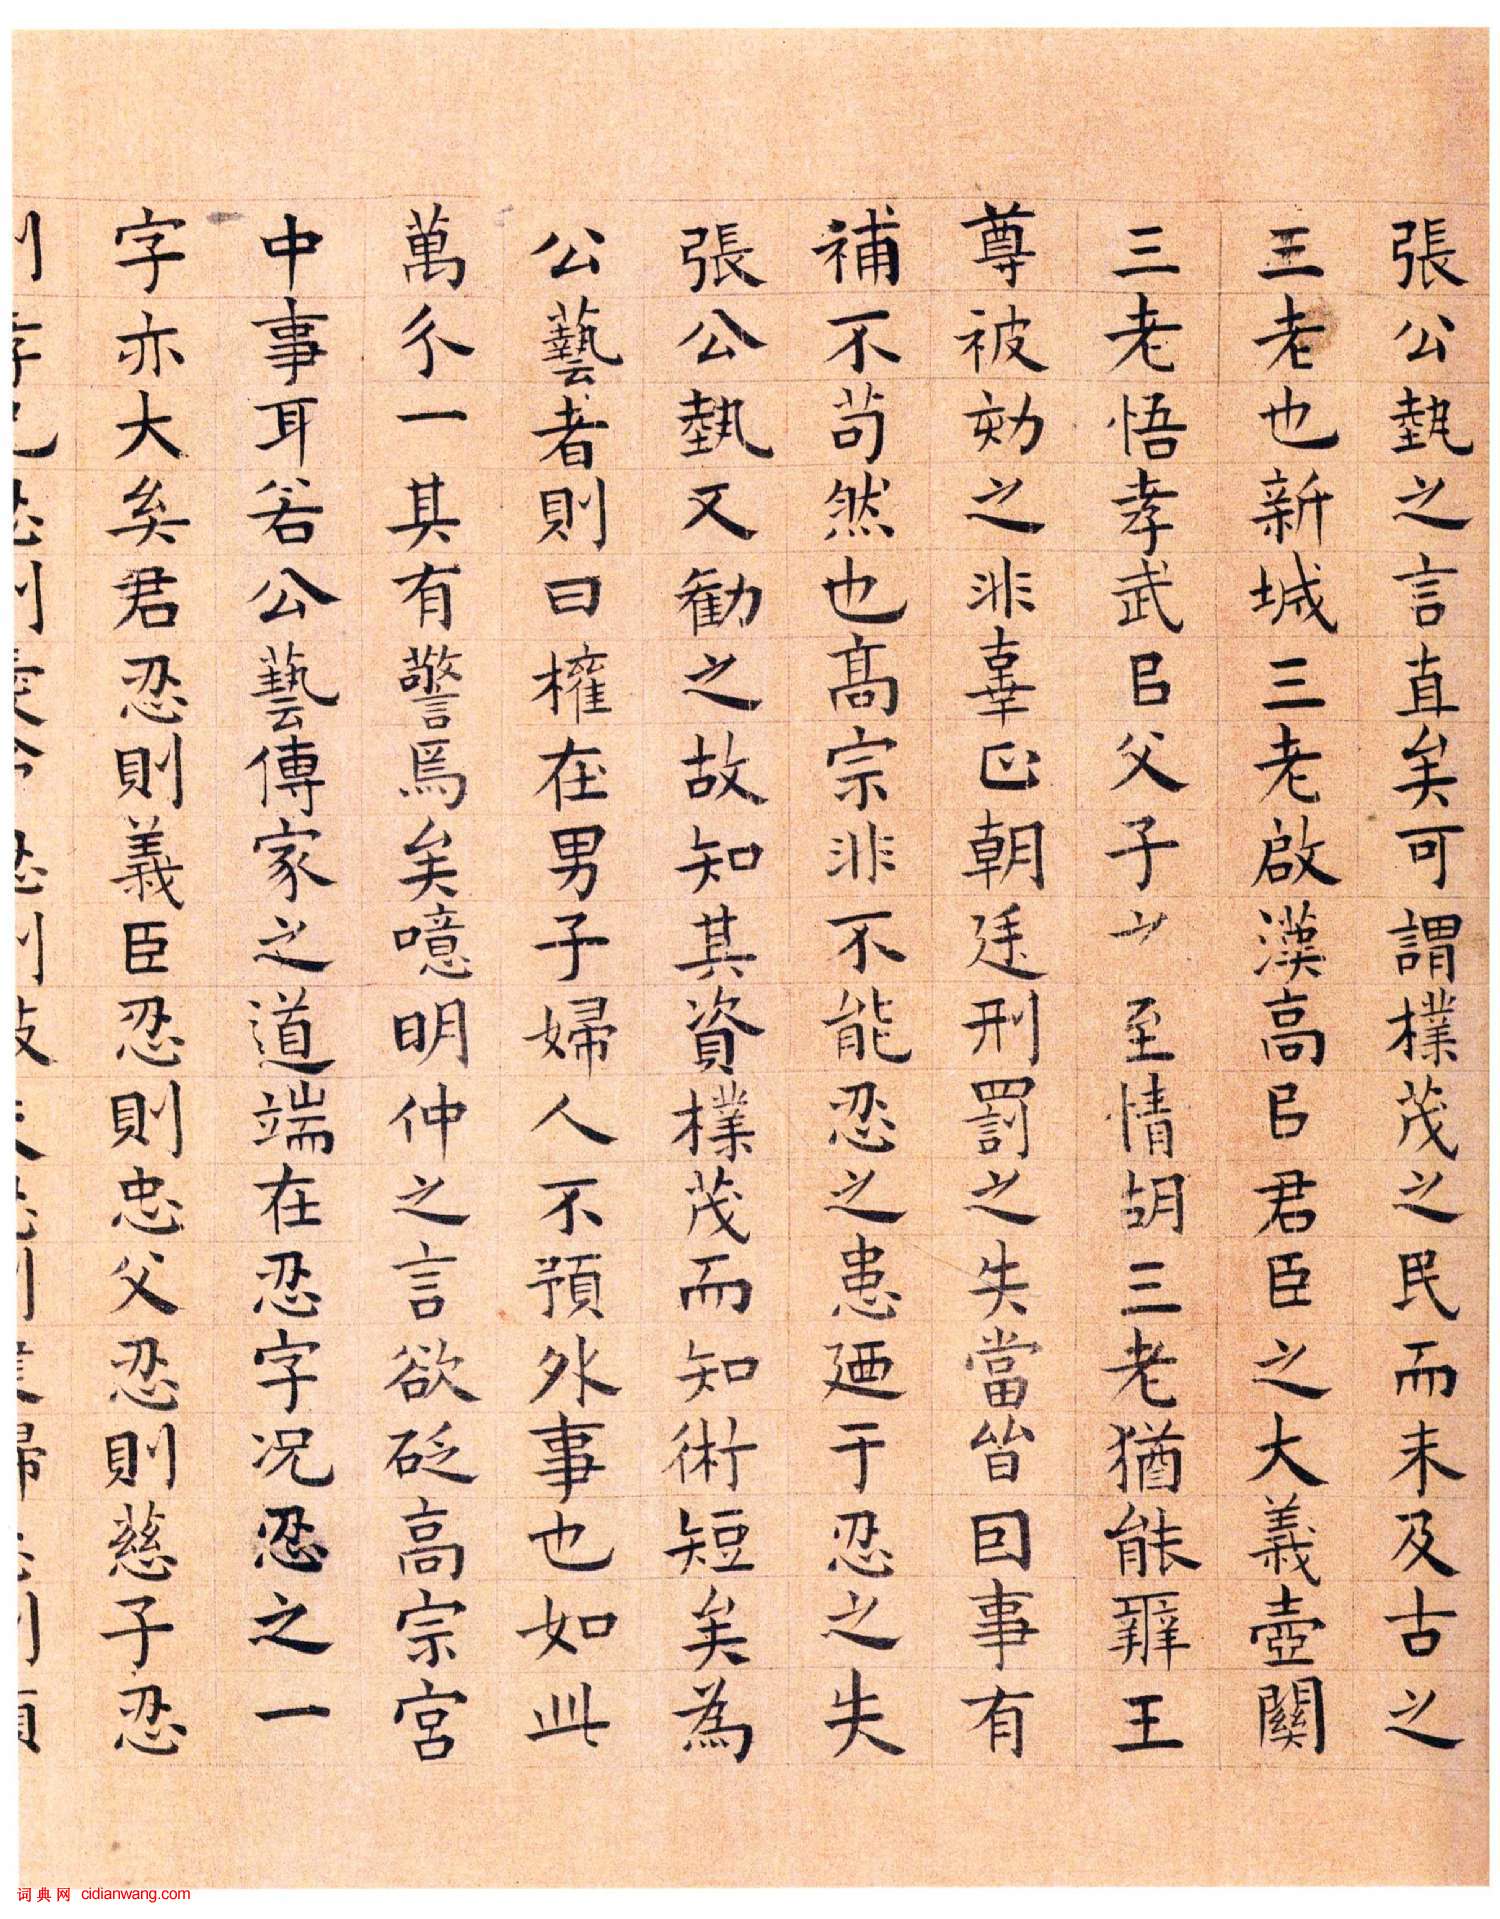 張公埶之言直矣可謂樸茂之民而未及古之
三老也新城三老啟漢高㠯君臣之大義壺關
三老悟孝武㠯父子之至情胡三老猶能辭王
尊被劾之非辜正朝廷刑罰之失當皆因事有
補不苟然也高宗非不能忍之患廼于忍之失
張公埶又勸之故知其資樸茂而知術短矣為
公藝者則曰權在男子婦人不預外事也如此
萬分一其有警焉矣噫明仲之言欲砭高宗宮
中事耳若公藝傳家之道端在忍字况忍之一
字亦大矣君忍則義臣忍則忠父忍則慈子忍
词典网 cidianwang.com